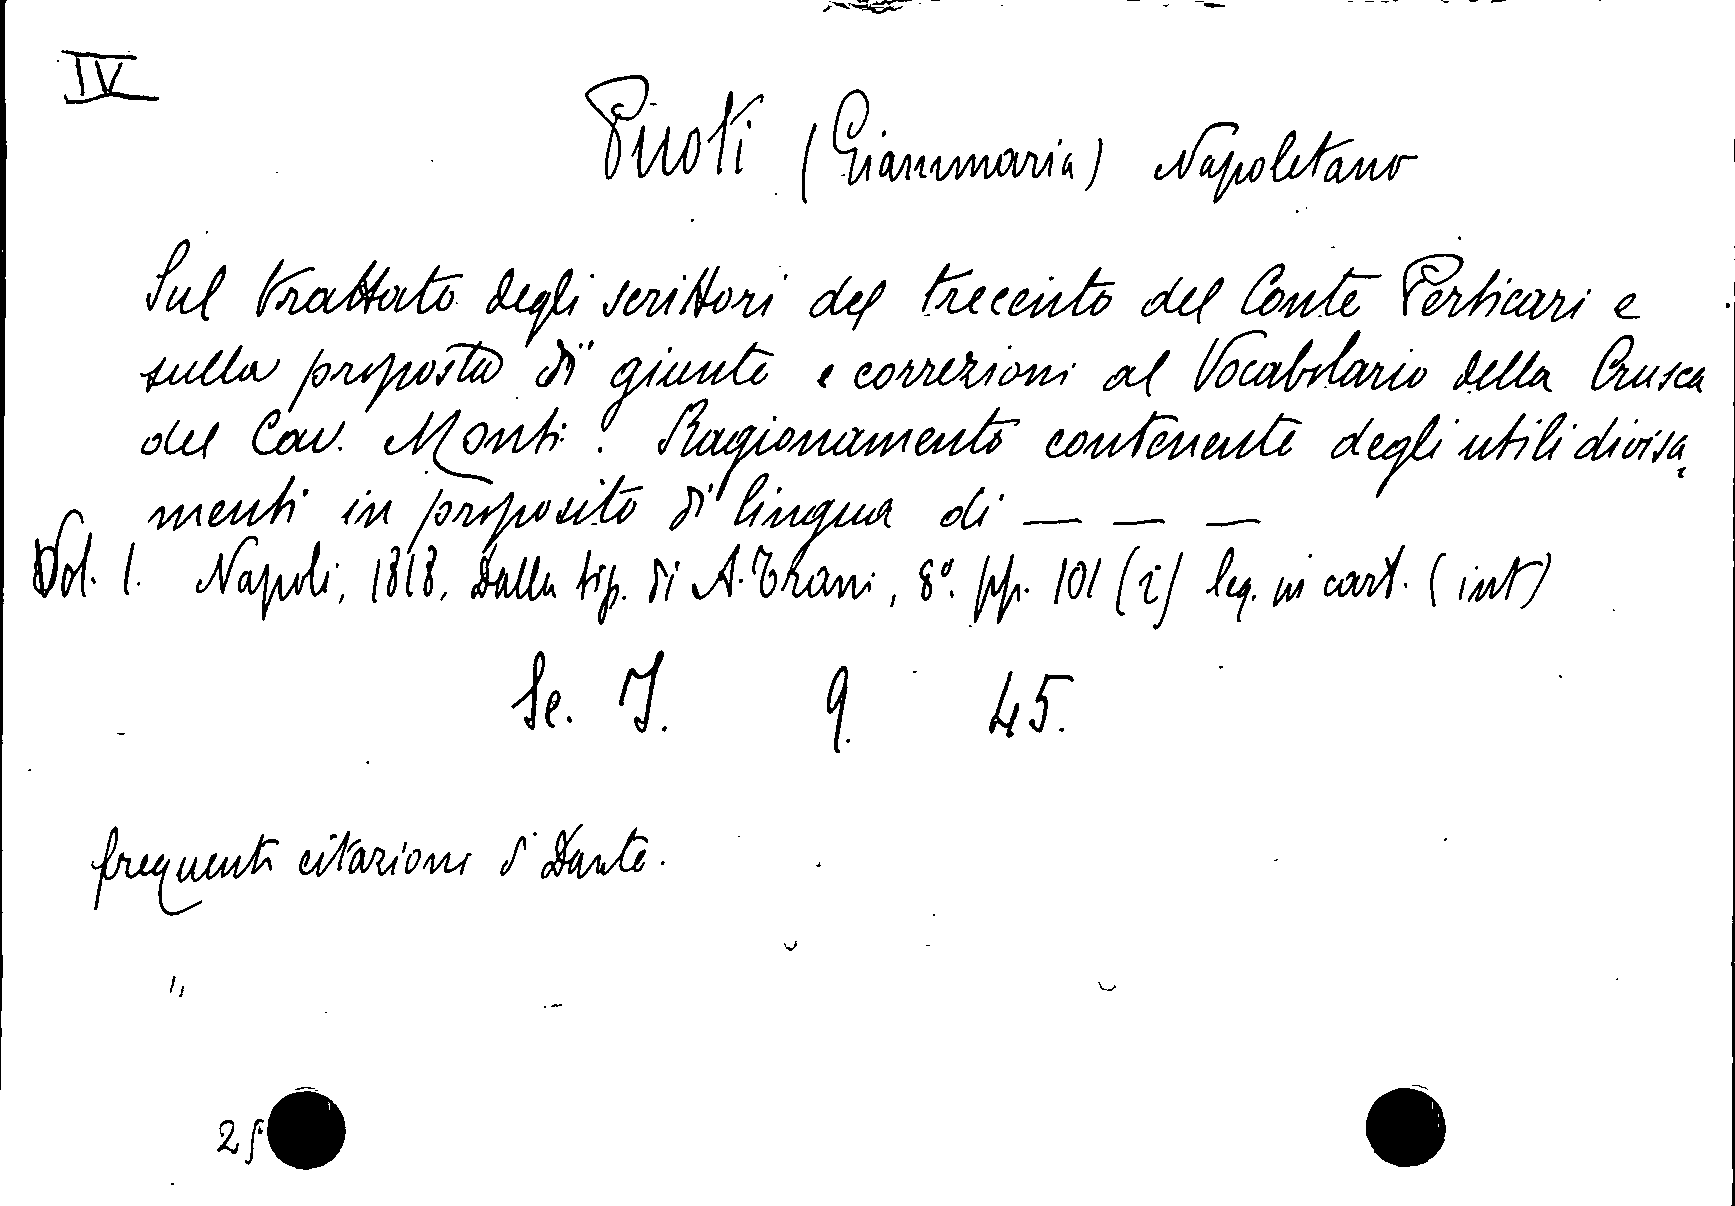 IV
Puoti (Giammaria) Napoletano
Sul trattato degli scrittori del trecento del Conte Perticari e
sulla proposta di giunte e correzioni al Vocabolario della Crusca
del Cav. Monti. Ragionamento contenente degli utili divisa,
menti in proposito di lingua di — — —
Vol. I. Napoli, 1818, Dalla tip. di A. Trani, 8º. pp. 101 (i) leg. in cart. (int)
Se. I. 9. 45.
frequenti citazioni d Dante.